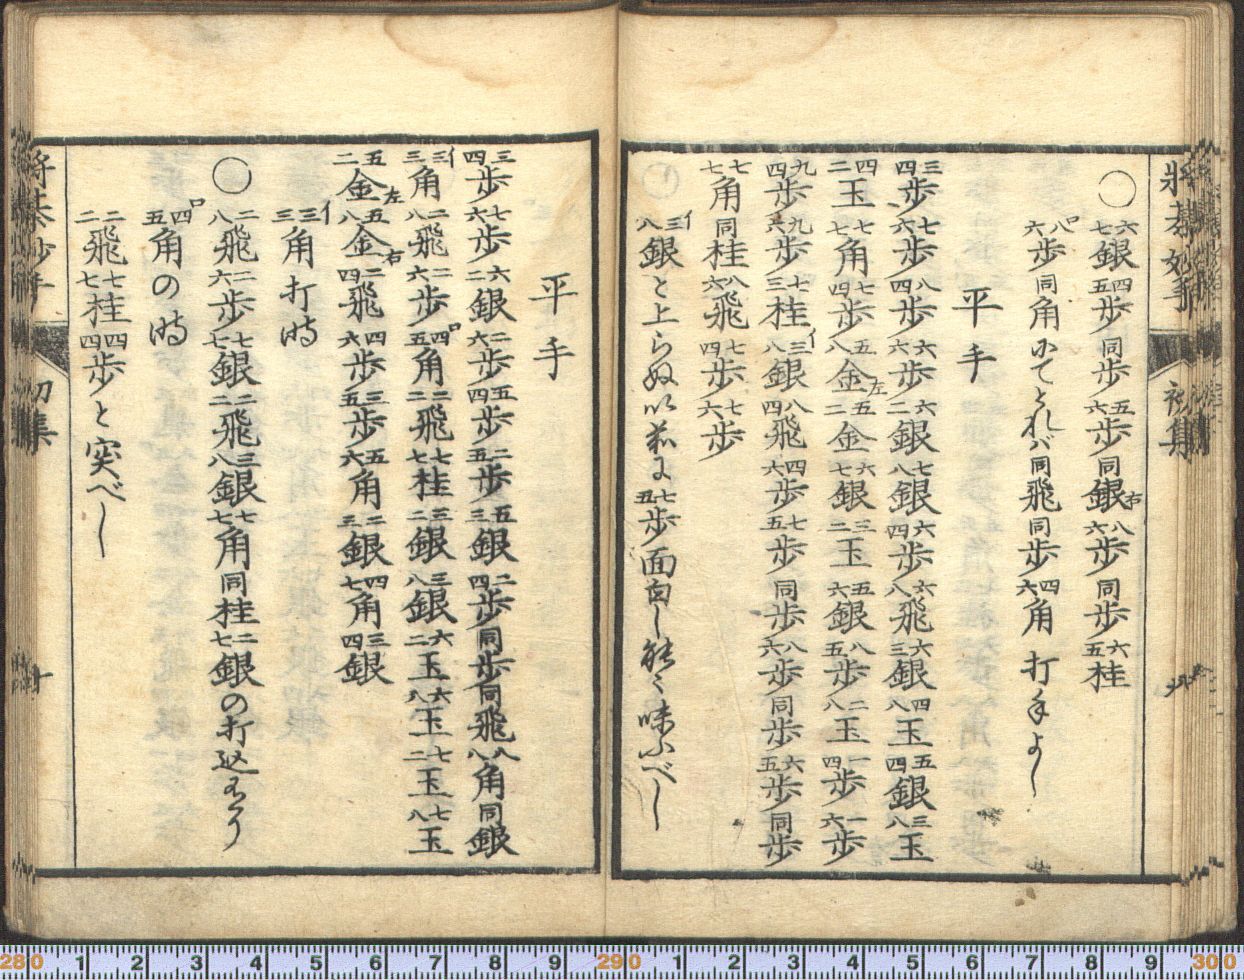 将棊妙手 初集
○六七銀四五歩同歩五六歩同銀右八六歩同歩六五桂
ロ八六歩同角にてとれバ同飛同歩四六角 打手よし
平手
三四歩七六歩八四歩六六歩六二銀七八銀六四歩六八飛六三銀四八玉五四銀三八玉
四二玉七七角七四歩五八金左五二金六七銀三二玉五六銀八五歩二八玉一四歩一六歩
九四歩九六歩七三桂イ三八銀八四飛四六歩七五歩同歩八六歩同歩六五歩同歩
七七角同桂八六飛七四歩七六歩
イ三八銀と上らぬ以前に七五歩面白し能く味ふべし
平手
三四歩七六歩六二銀二六歩五四歩二五歩五三銀二四歩同歩同飛八八角同銀
イ三三角二八飛二六歩ロ四五角二二飛七七桂三二銀三八銀六二玉六八玉七二玉七八玉
五二金左五八金右二四飛四六歩三五歩五六角二三銀四七角三四銀
イ三三角打時
○二八飛二六歩七七銀二二飛三八銀七七角同桂二七銀の打込あり
ロ四五角の時
二二飛七七桂四四歩と突べし
将棊妙手 初集 十
280 1 2 3 4 5 6 7 8 9 290 1 2 3 4 5 6 7 8 9 300